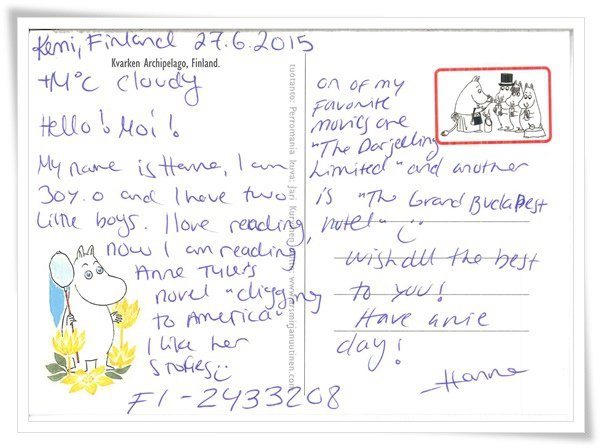 Kemi, Finland 27.6.2015
Kvarken Archipelago, Finland.
cloudy
Hello! Moi!
My name is Hanne, I am
30y.o and I have two
little boys. I love reading,
now I am reading
Anne Tyler's
novel "digging
to America"
I like her
stories
FI-2433208
on of my
favorite
movies are
"The Darjeeling
Limited" and another
is "The Grand Budapest
hotel"
wish all the best
to you!
Have a nice
day!
Hanne
tuotanto: Perromania kuva: Jari